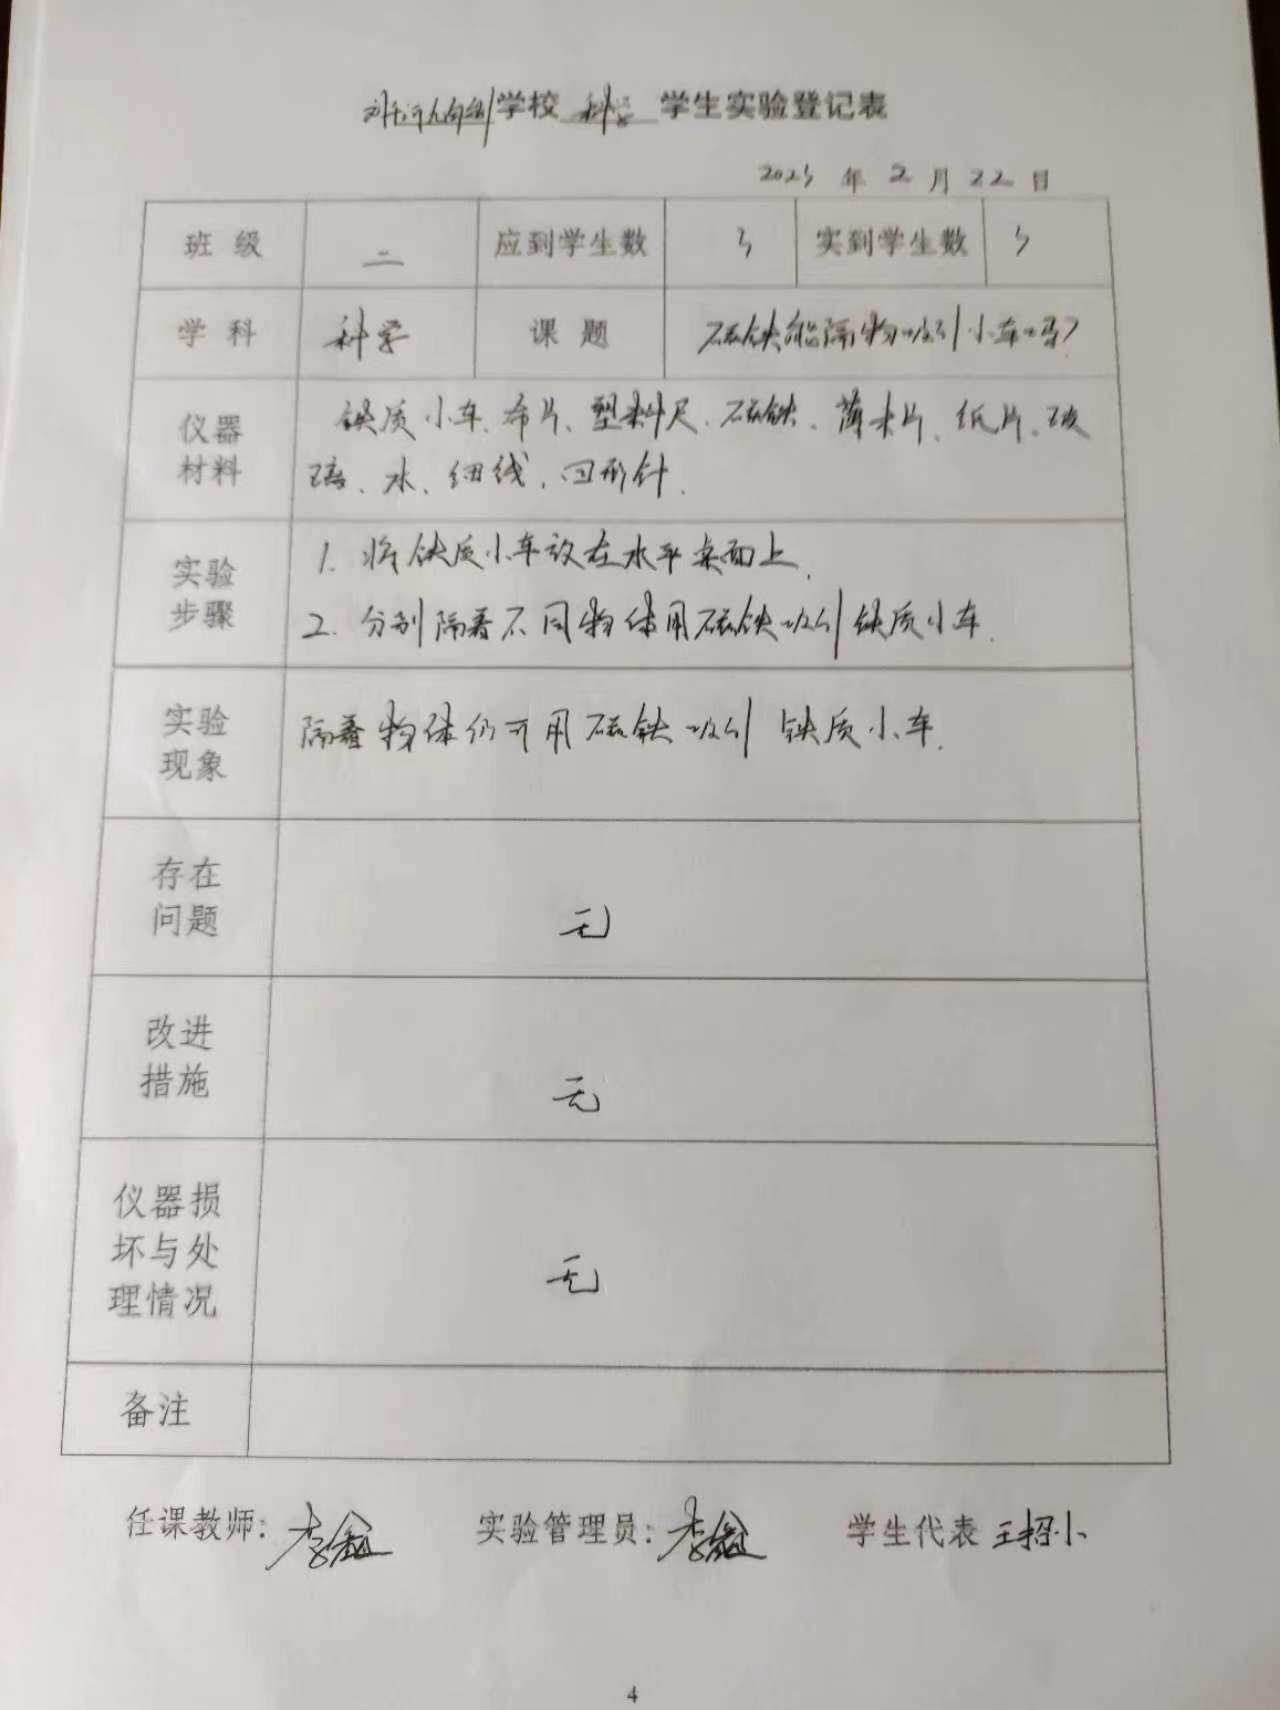 学校 科学 学生实验登记表
2023 年 2 月 22 日
班 级 二 应到学生数 3 实到学生数 3
学 科 科学 课 题 磁铁能隔物吸引小车吗?
仪器
材料
铁质小车、布片、塑料尺、磁铁、薄木片、纸片、玻
璃、水、细线、回形针.
实验
步骤
1. 将铁质小车放在水平桌面上.
2. 分别隔着不同物体用磁铁吸引铁质小车.
实验
现象
隔着物体仍可用磁铁吸引 铁质小车.
存在
问题
无
改进
措施
无
仪器损
坏与处
理情况
无
备注
任课教师: 李鑫 实验管理员: 李鑫 学生代表 王招小
4